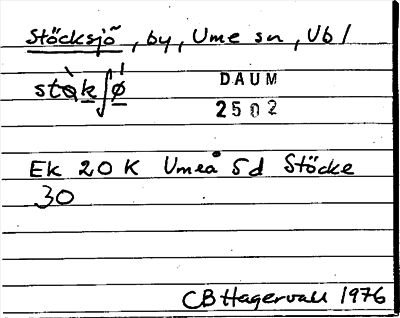 Stöcksjö, by, Ume sn, Vb/
DAUM
2502
Ek 20 K Umeå Sd Stöcke
30
CB Hagervall 1976